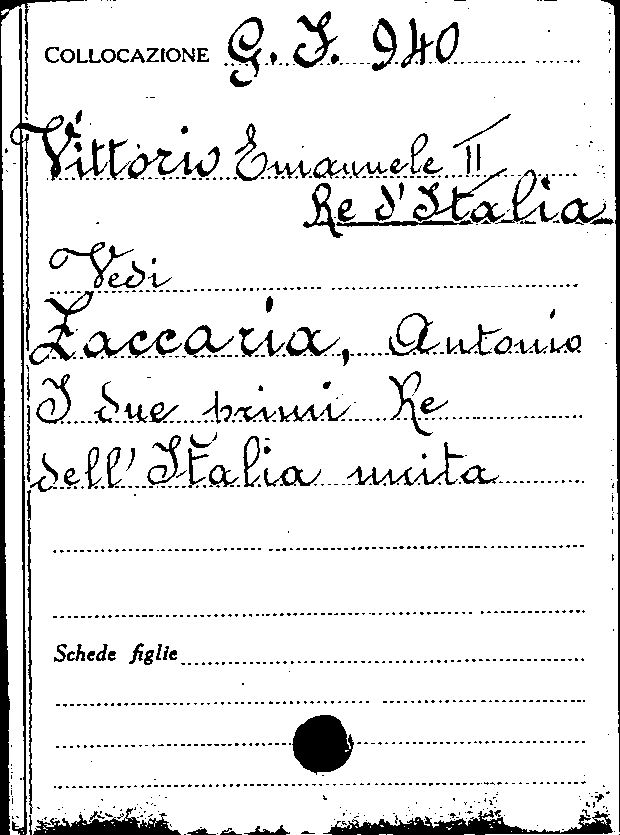 COLLOCAZIONE G. I. 940
Vittorio Emanuele II
Re d'Italia
Vedi
Zaccaria, Antonio
I due primi Re
dell'Italia unita
Schede figlie